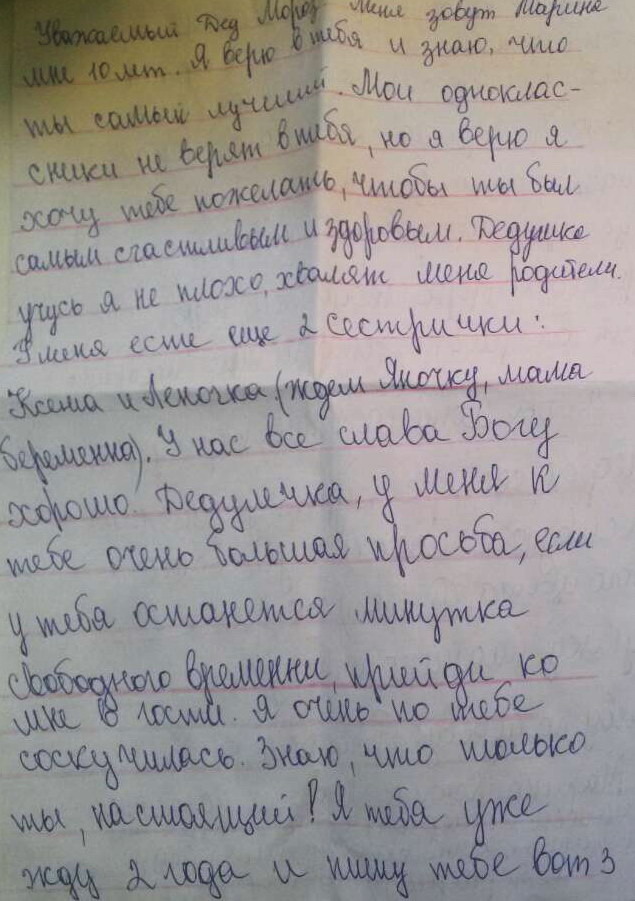 Уважаемый Дед Мороз меня зовут Марина
мне 10 лет. Я верю в тебя и знаю, что
ты самый лучший. Мои однoклас-
сники не верят в тебя, но я верю я
хочу тебе пожелать, чтобы ты был
самым счастливым и здоровым. Дедушка
учусь я не плохо, хвалят меня родители.
У меня есте еще 2 сестрички:
Ксюша и Леночка (ждем Яночку, мама
беременна). У нас все слава Богу
хорошо. Дедулечка, у меня к
тебе очень большая просьба, если
у тебя останется минутка
свободного временни, прийди ко
мне в гости. Я очень по тебе
соскучилась. Знаю, что только
ты, настоящий! Я тебя уже
жду 2 года и пишу тебе вот 3